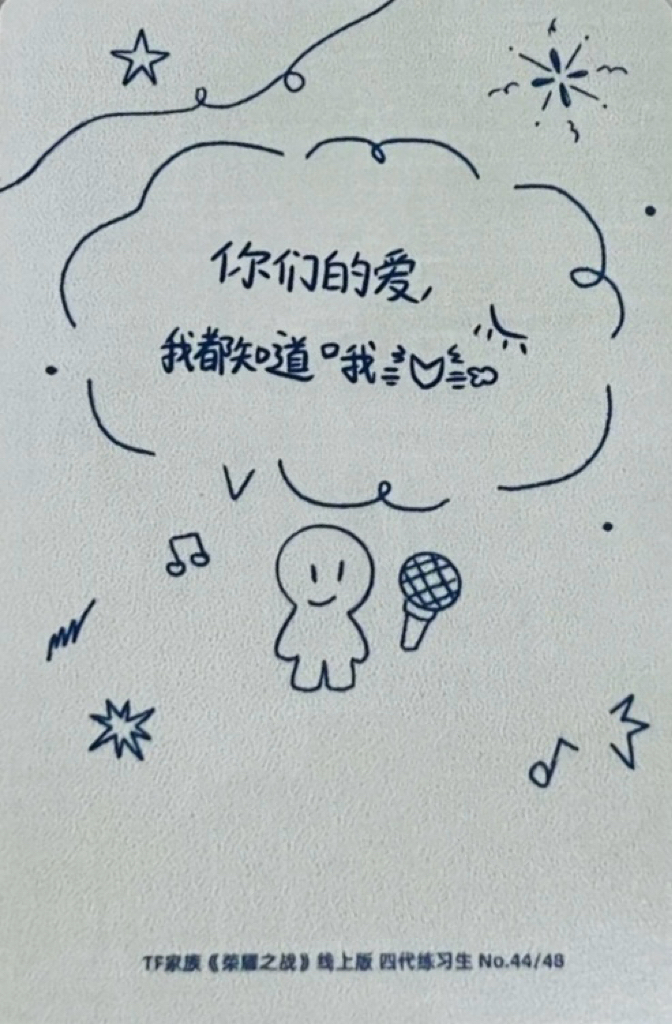 你们的爱,
我都知道哦我
TF家族《荣耀之战》线上版 四代练习生 No.44/48